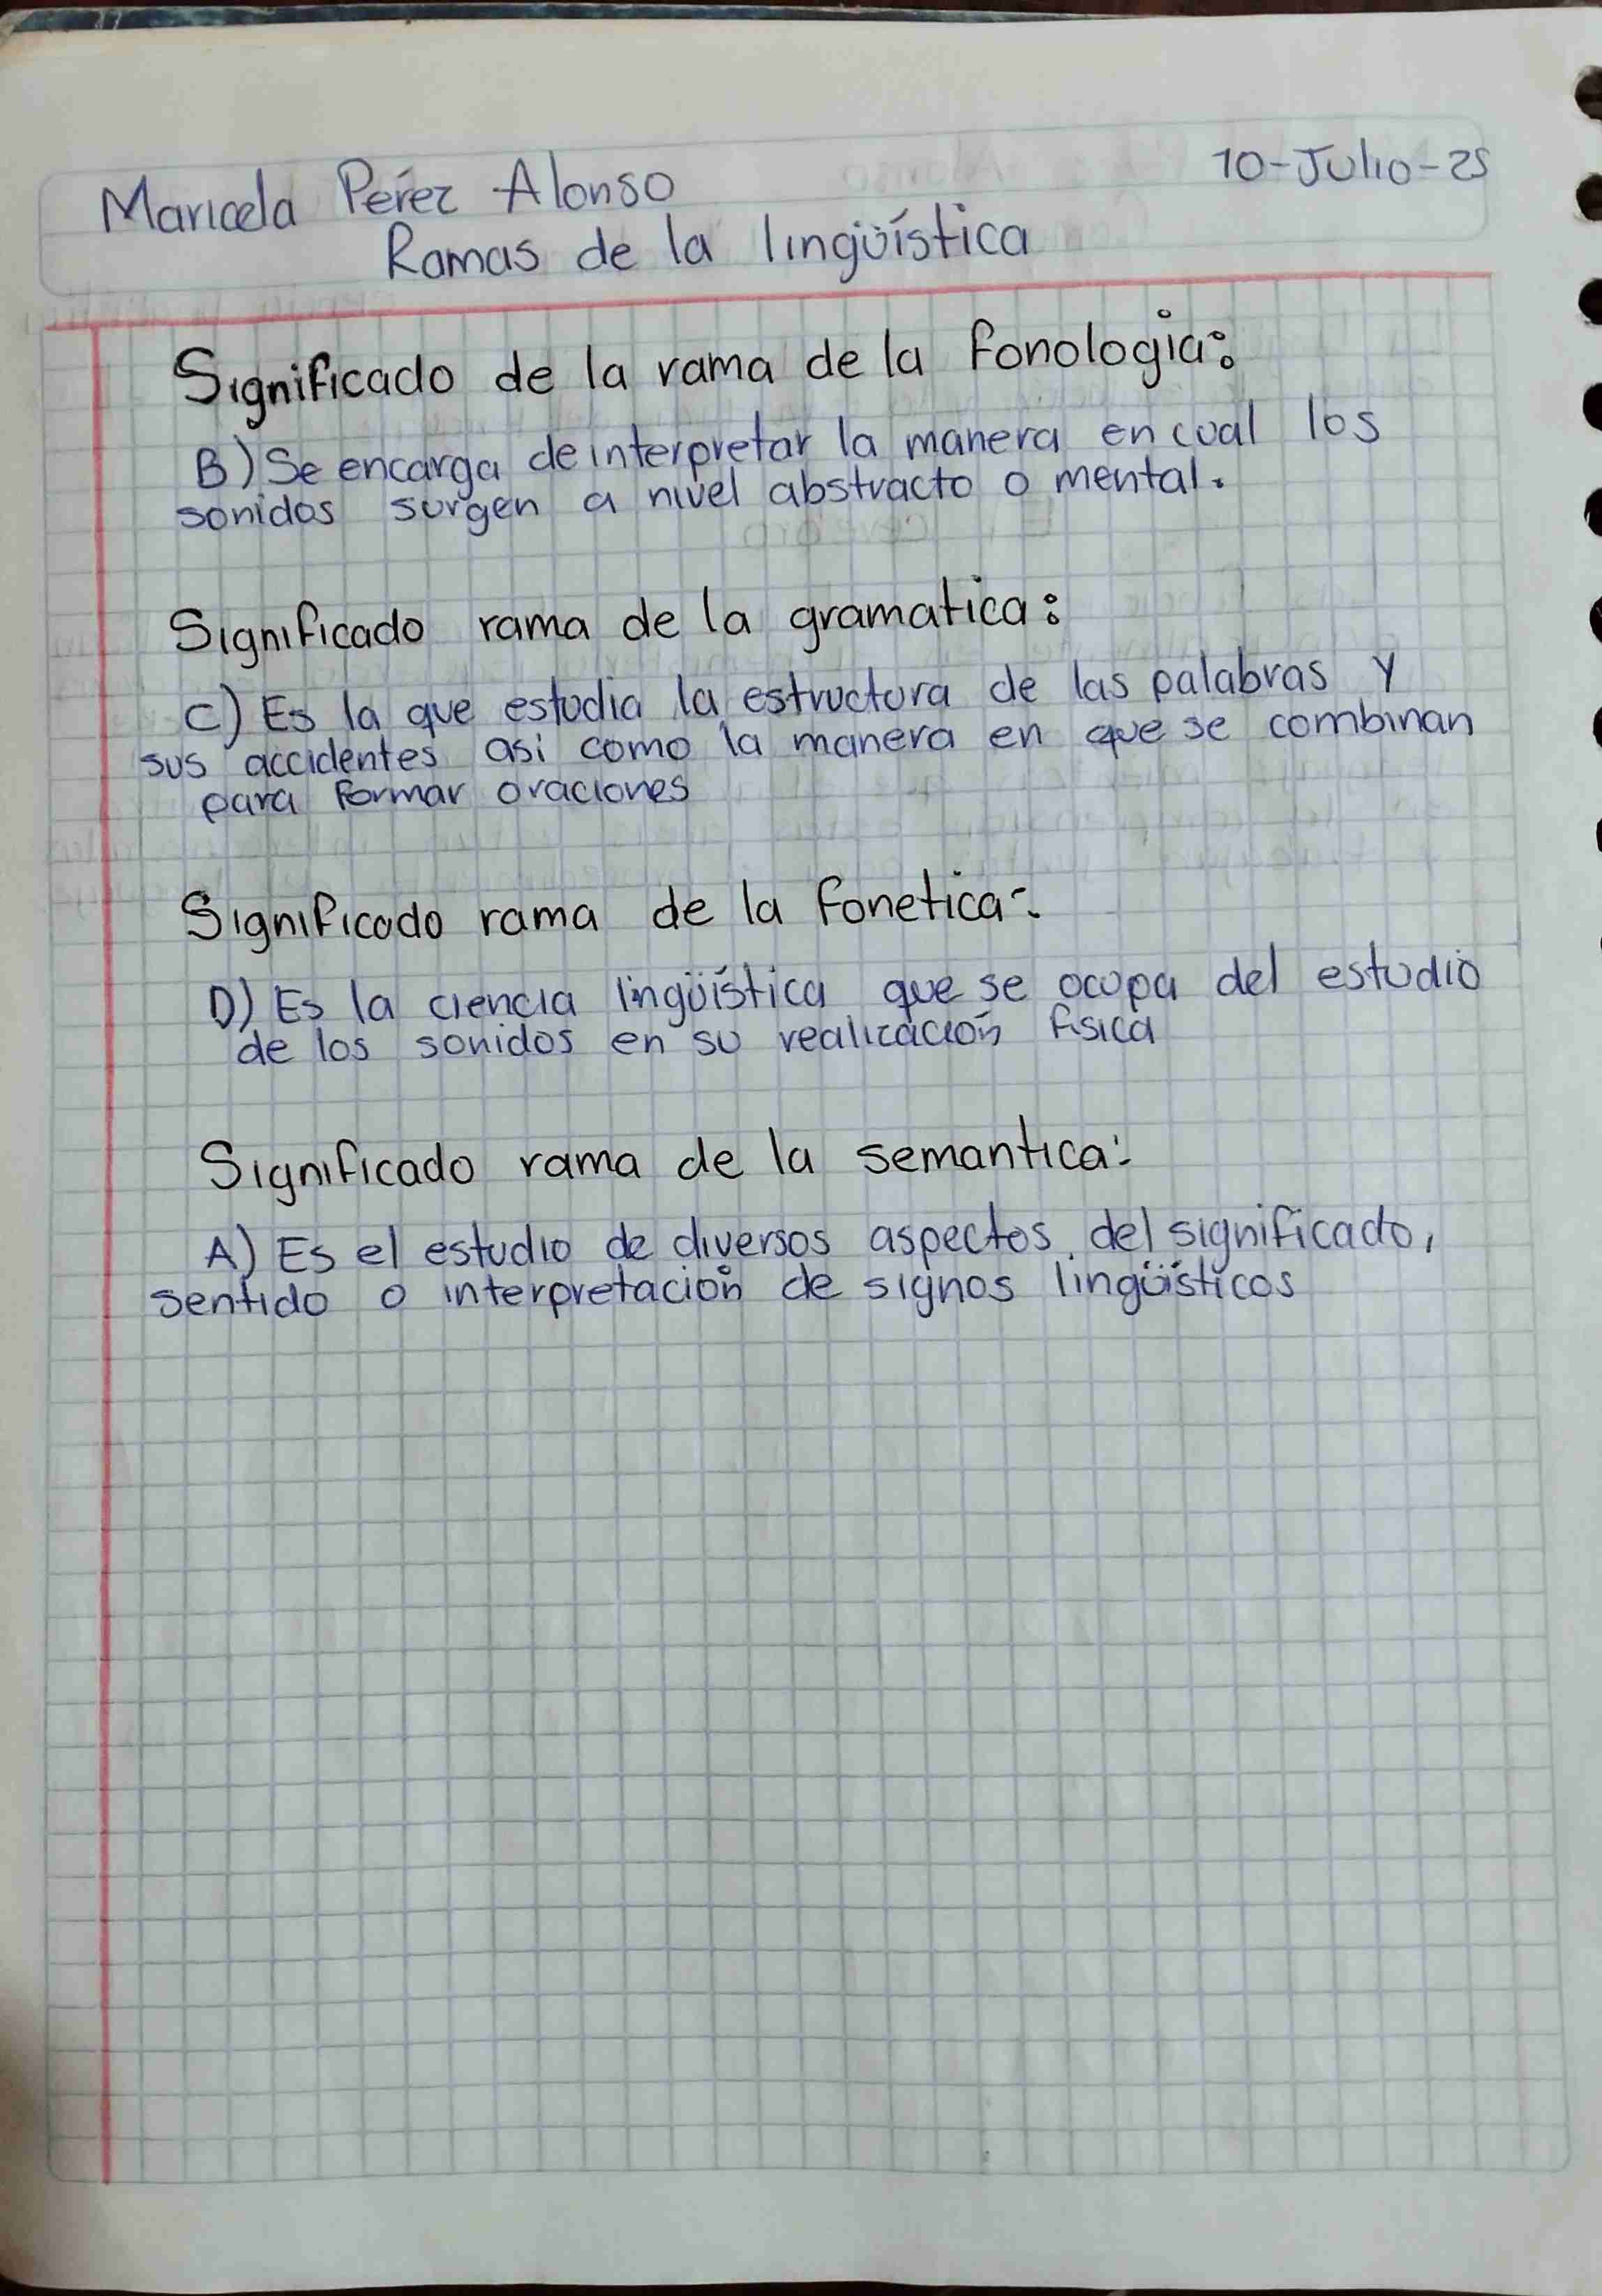 Maricela Peréz Alonso
10-Julio-25
Ramas de la lingüística
Significado de la rama de la fonologia:
B) Se encarga de interpretar la manera en cual los
sonidos surgen a nivel abstracto o mental.
Significado rama de la gramatica:
C) Es la que estudia la estructura de las palabras y
sus accidentes asi como la manera en que se combinan
para formar oraciones
Significado rama de la fonetica:
D) Es la ciencia lingüística que se ocupa del estudio
de los sonidos en su realización fisica
Significado rama de la semantica:
A) Es el estudio de diversos aspectos del significado,
sentido o interpretación de signos lingüísticos